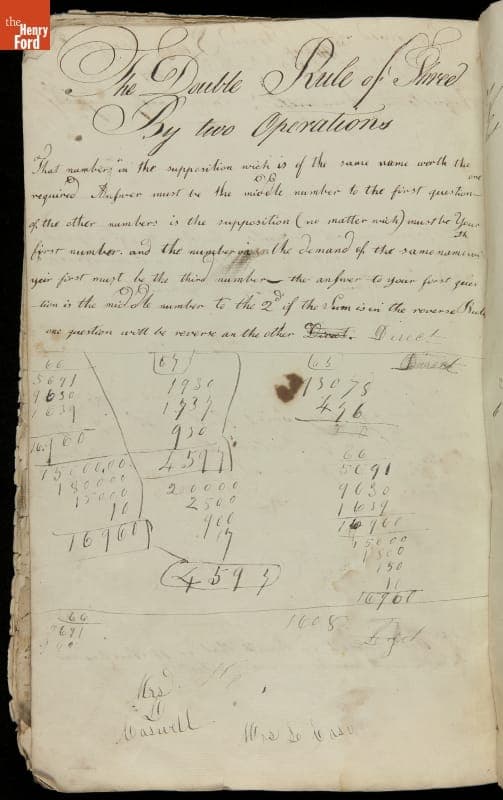 the
Henry
Ford
The Double Rule of Three
By two Operations
That number in the supposition wich is of the same name worth the
required Answer must be the middle number to the first question one
of the other numbers is the supposition (no matter wich) must be Your
first number. and the number in the demand of the same name
yoir first must be the third number the answer to your first ques
tion is the middle number to the 2d if the Sum is in the reverse Rule
one question will be reverse an the other Direct. Direct
66
5691
9630
1639
16960
67
1930
1737
930
4597
20000
2500
900
7
4597
65
13075
496
66
5691
9630
1639
16960
15000
1800
150
10
16960
15000.00
180000
15000
10
16960
66
1608
Mrs
Caswell
Mrs L Cas